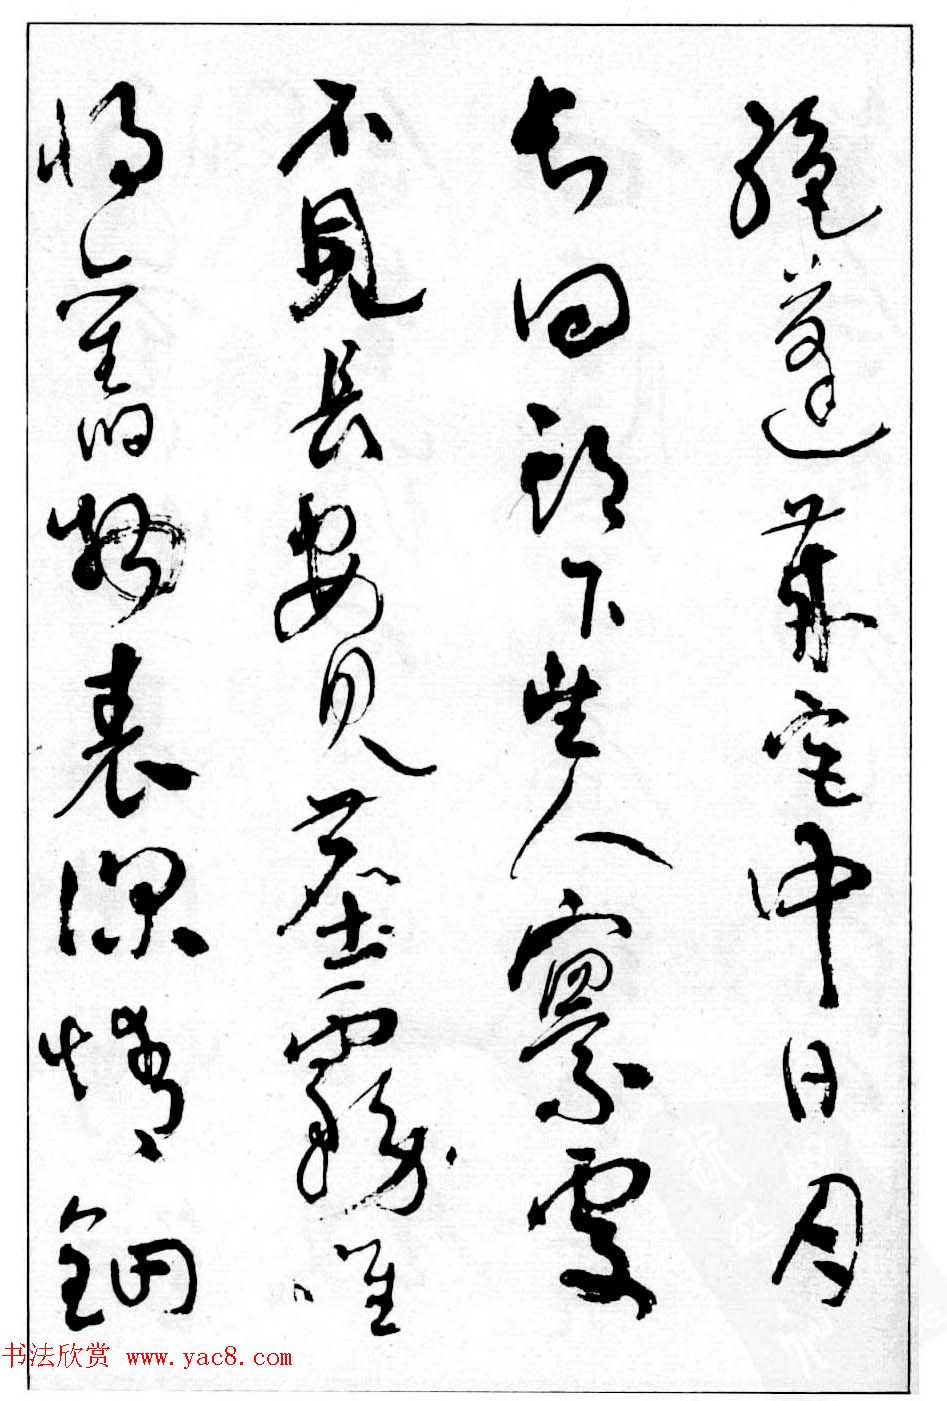 絕蓬萊宮中日月
長回頭下望人寰處
不見長安見塵霧唯
將舊物表深情鈿
书法欣赏 www.yac8.com